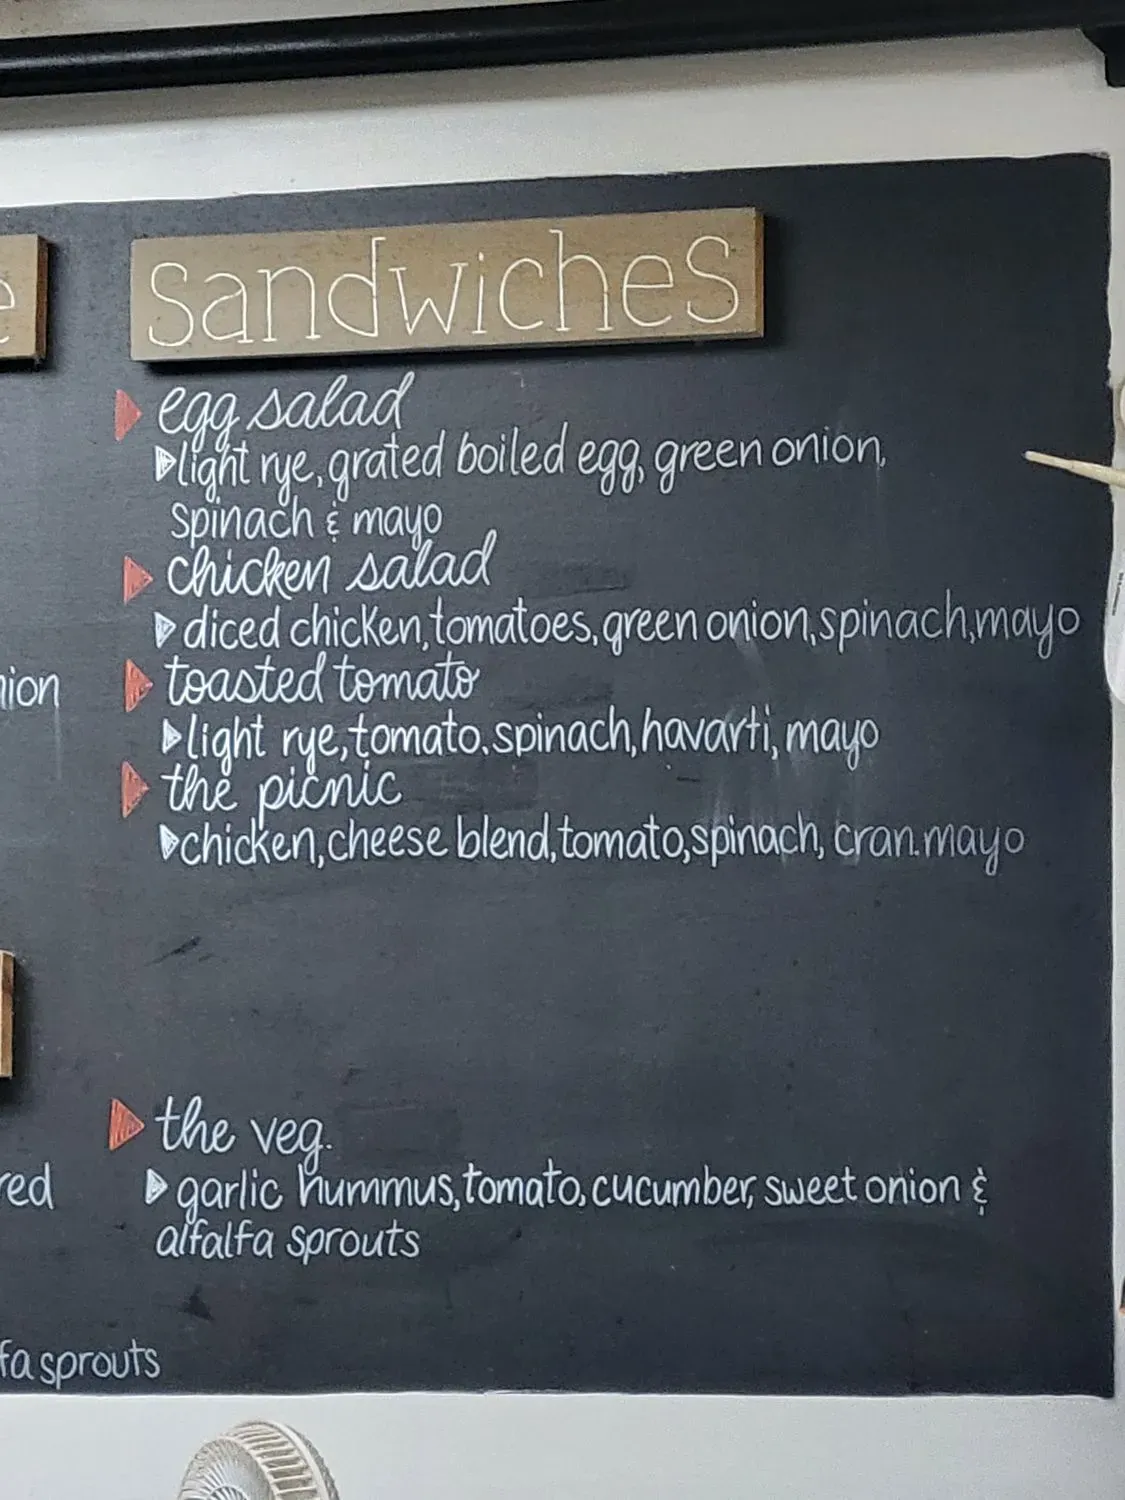 e
sandwiches
egg salad
light rye, grated boiled egg, green onion,
spinach & mayo
chicken salad
diced chicken, tomatoes, green onion, spinach, mayo
nion
toasted tomato
light rye, tomato, spinach, havarti, mayo
the picnic
chicken, cheese blend, tomato, spinach, cran.mayo
the veg.
red
garlic hummus, tomato, cucumber, sweet onion &
alfalfa sprouts
fa sprouts